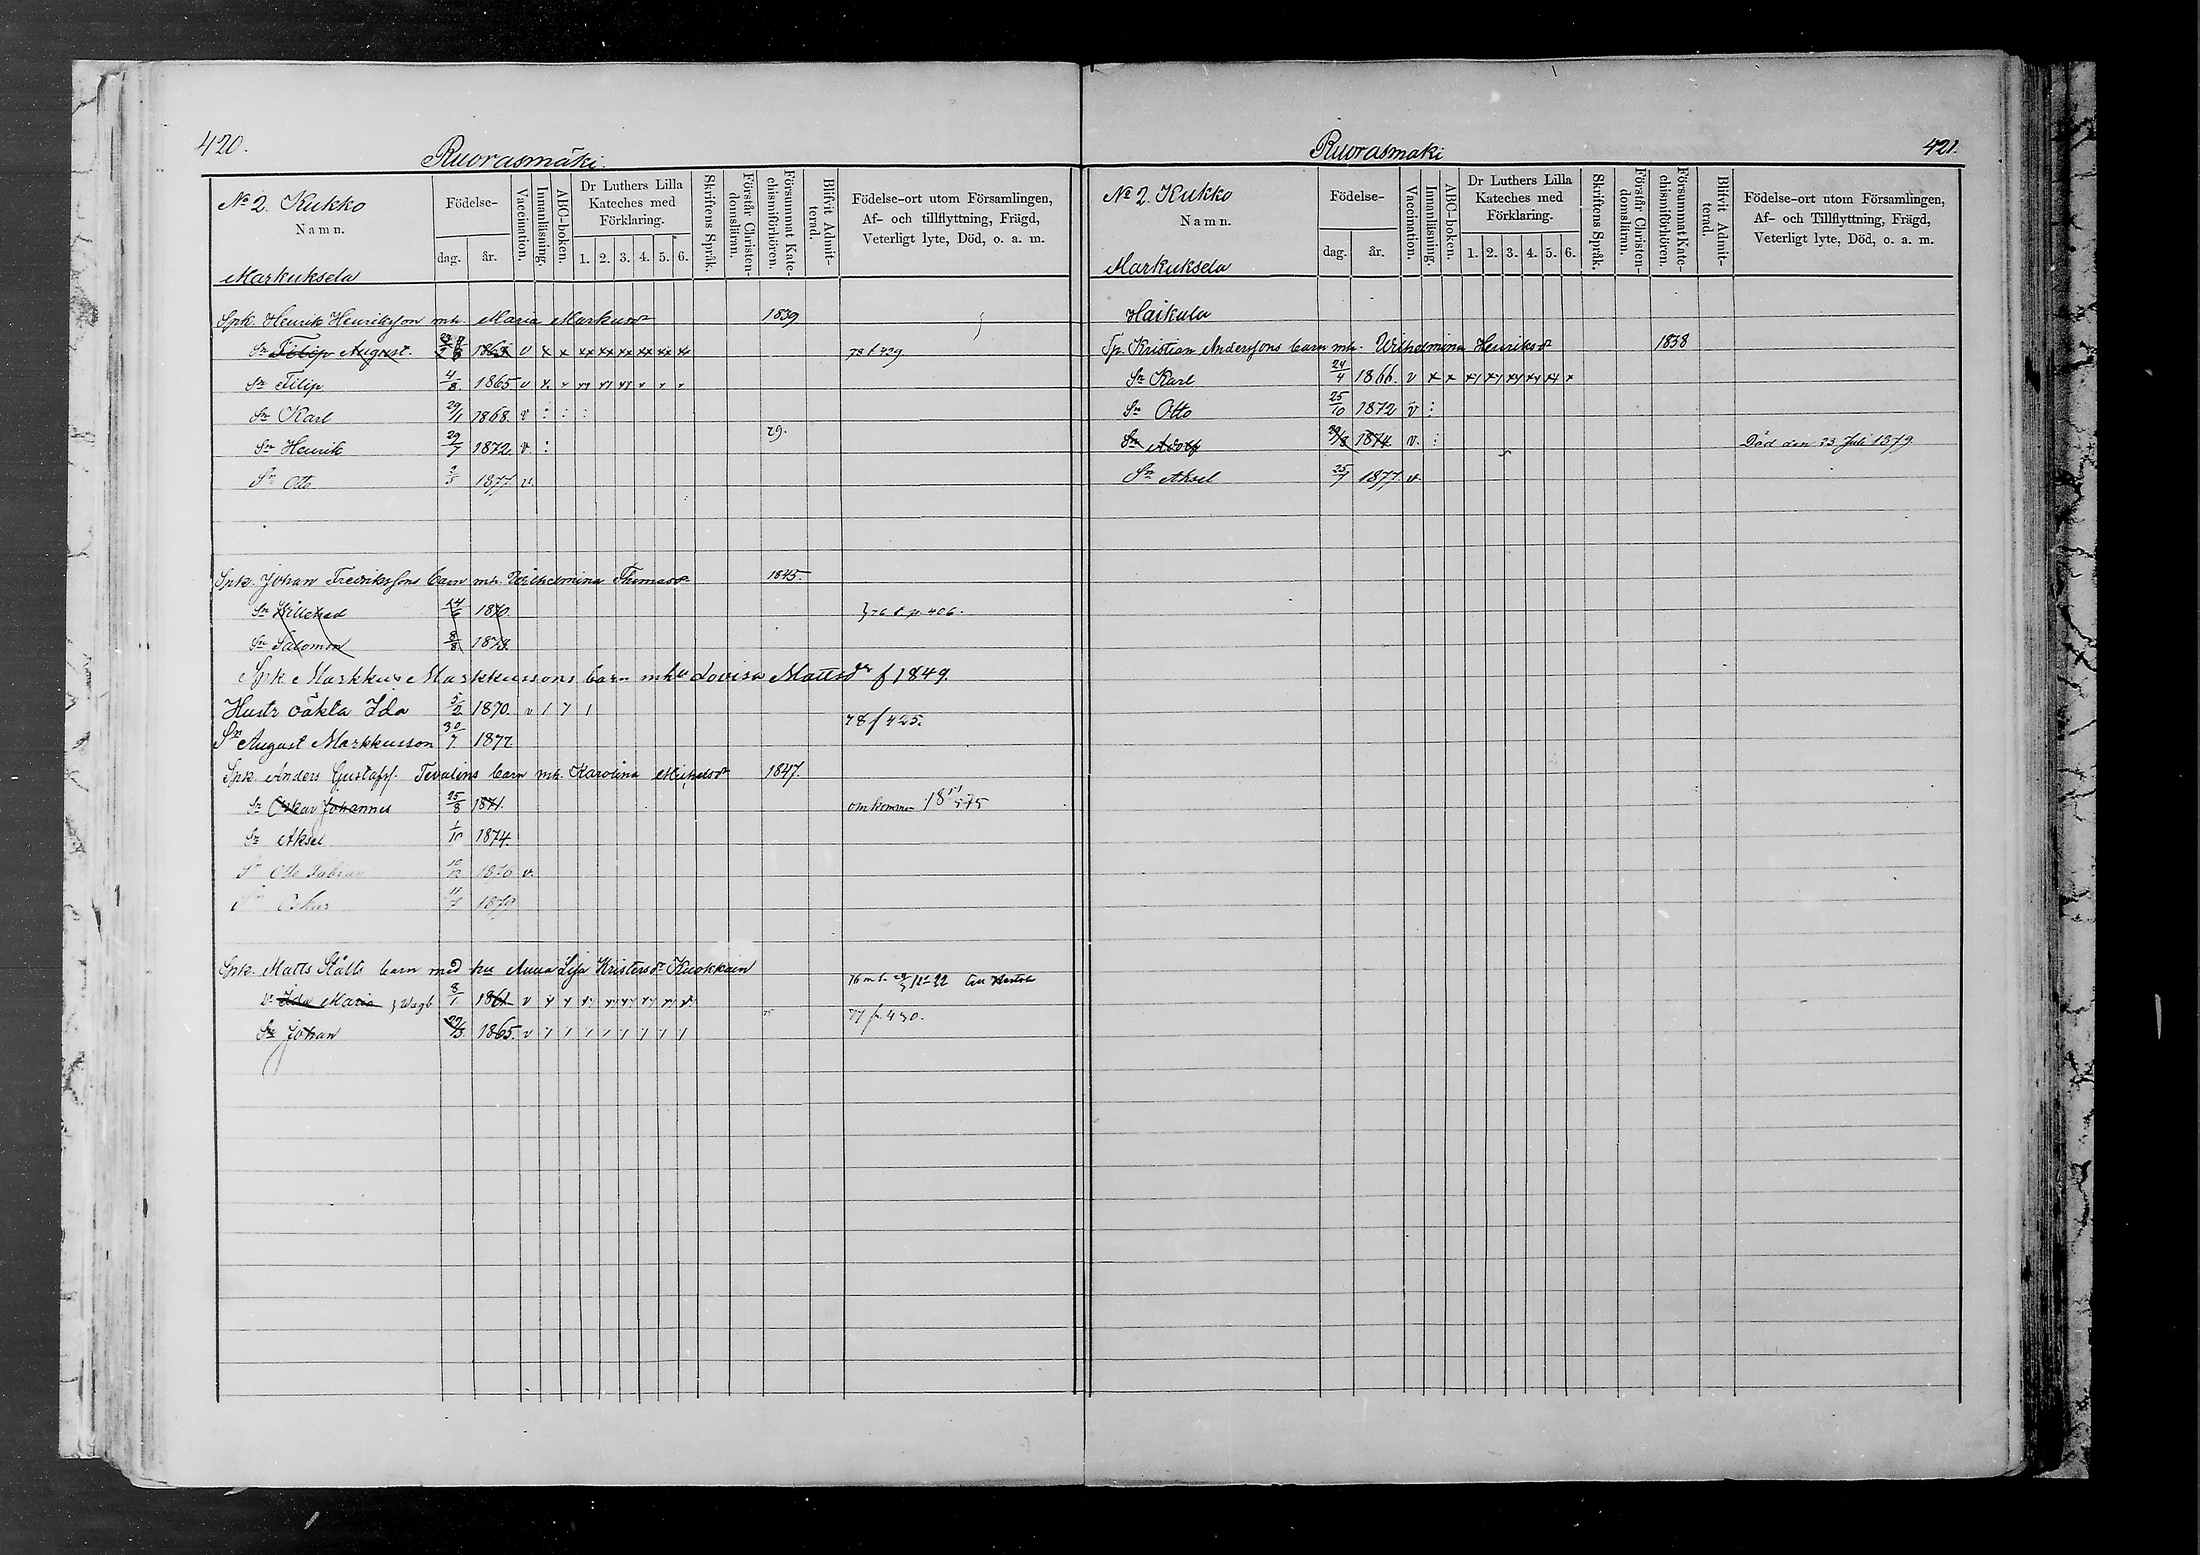 420.
Ruorasmäki.
No 2. Kukko
Namn.
Markuksela
Födelse-
dag.
år.
Vaccination.
Innanläsning.
ABC-boken.
Dr Luthers Lilla
Kateches med
Förklaring.
1. 2. 3. 4. 5. 6.
Skriftens Språk.
Förstår Christen-
domsläran.
Försummat Kate-
chismiförhören.
Blifvit Admit-
terad.
Födelse-ort utom Församlingen,
Af- och tillflyttning, Frägd,
Veterligt lyte, Död, o. a. m.
Spk. Henrik Henriksson mh. Maria Markusdr 1839
Sn Filip August. v x x xx xx xx xx xx xx 78 f 439
Sn Filip 4/8 1865 v
Sn Karl 29/1 1868. v : : :
29.
Sn Henrik 29/7 1872. v :
Sn Otto 2/5 1877. v.
Spk. Johan Fredrikssons barn mh. Wilhelmina Thomasdr 1845.
Sn 14/6 1870. } 76 f. p. 406.
Sn Salomon 8/8 1873.
Spk. Markkus Markkussons barn mhu Lovisa Mattsdr f 1849.
Hustr oäkta Ida 5/2 1870. v
78 f 425.
Sn August Markkusson 30/7 1877
Spk. Anders Gustafs. Tevalins barn mh. Karolina Michelsdr 1847.
Sn Oskar Johannes 25/8 1871. omkommen
Sn Aksel 1/10 1874.
Sn Otto Fabian 10/12 1876 v.
Sn Oskar 11/7 1879
Spk. Matts Ståls barn med hu Anna Lisa Kristersdr Kuokkain
Dr Ida Maria 8/1 1861 v
Sn Johan 1865. v 77 f. 430.
421.
Ruorasmäki
No 2. Kukko
Namn.
Markuksela
Födelse-
dag.
år.
Vaccination.
Innanläsning.
ABC-boken.
Dr Luthers Lilla
Kateches med
Förklaring.
1. 2. 3. 4. 5. 6.
Skriftens Språk.
Förstår Christen-
domsläran.
Försummat Kate-
chismiförhören.
Blifvit Admit-
terad.
Födelse-ort utom Församlingen,
Af- och Tillflyttning, Frägd,
Veterligt lyte, Död, o. a. m.
Haikula
Sp. Kristian Anderssons barn mh. Wilhelmina Henriksdr 1838
Sn Karl 24/4 1866. v x x
Sn Otto 25/10 1872 v :
Sn Adolf 1874. v. : Död den 23 Juli 1879
Sn Aksel 25/7 1877. v.